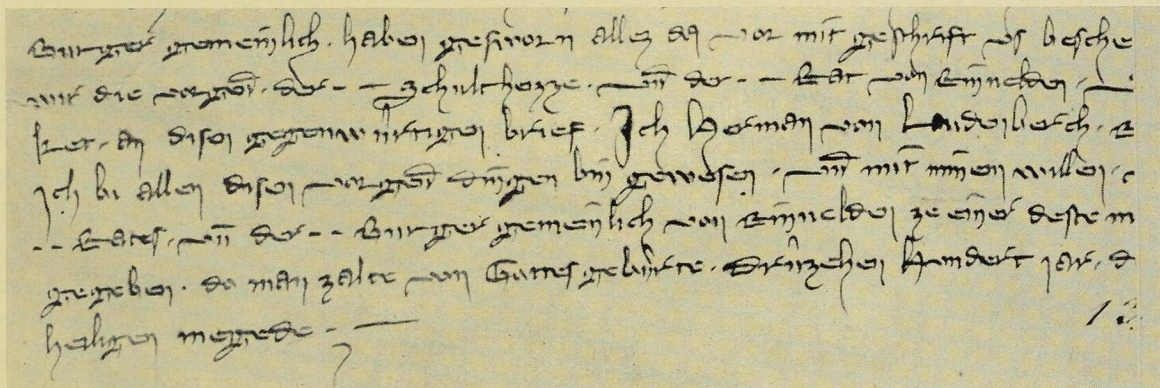 Burger gemeinlich . haben gesworn allez da vor mit geschrift us besche
wir die vorgen̄ . der - - Schulthezze . vn̄ der - - Rat von Rinuelden .
ket . an disen gegenwûrtigen brief . Ich Herman von Landenberch .
Ich bi allen disen vorgen̄ dingen bin gewesen . vn̄ mit minen willen .
- - Rates . vn̄ der - - Burger gemeinlich von Rinuelden ze einer deste m
gegeben . do man zalte von Gottes gebûrte . drûzehen Hundert jar . d
heiligen megede . -